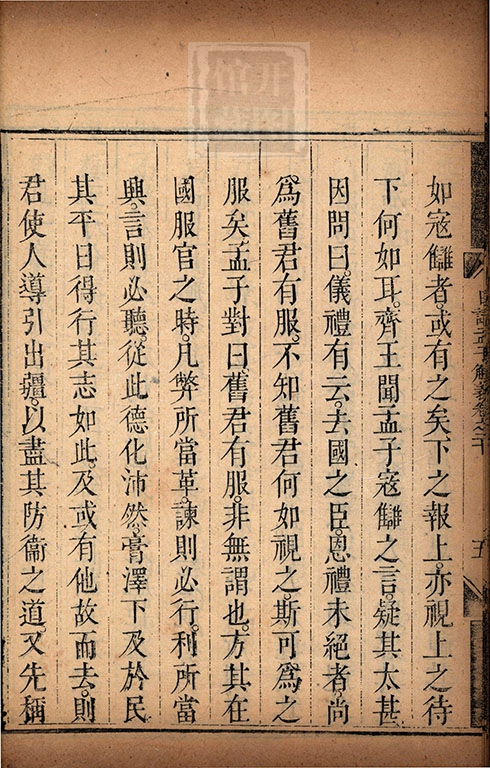 如寇讎者。或有之矣。下之報上。亦視上之待
下何如耳。齊王聞孟子寇讎之言。疑其太甚
因問曰。儀禮有云。去國之臣。恩禮未絕者。尚
為舊君有服。不知舊君何如視之。斯可為之
服矣。孟子對曰。舊君有服。非無謂也。方其在
國服官之時。凡弊所當革。諫則必行。利所當
興。言則必聽。從此德化沛然。膏澤下及於民
其平日得行其志如此。及或有他故而去。則
君使人導引出疆。以盡其防衞之道。又先稱